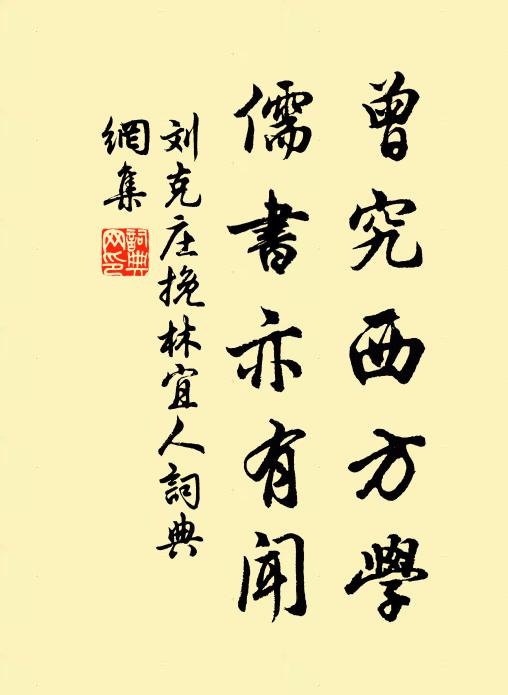 曾究西方學
儒書亦有聞
刘克庄挽林宜人詞典
網集
詞典網印